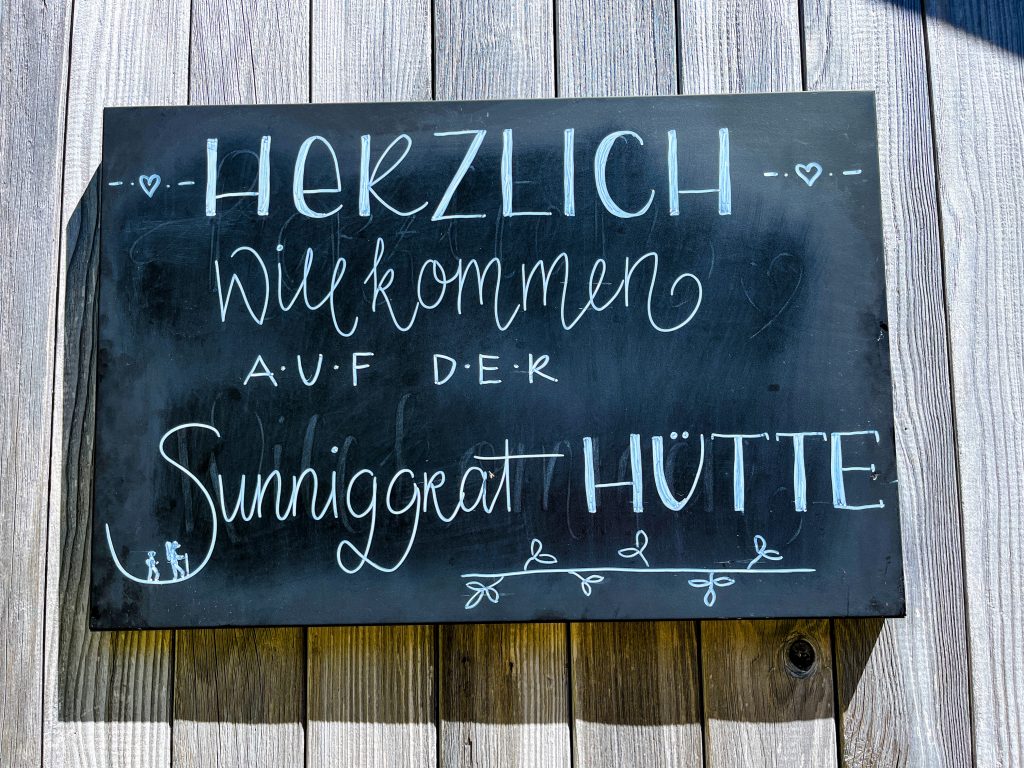 HERZLICH
Willkommen
A·U·F D·E·R
Sunniggrat HÜTTE